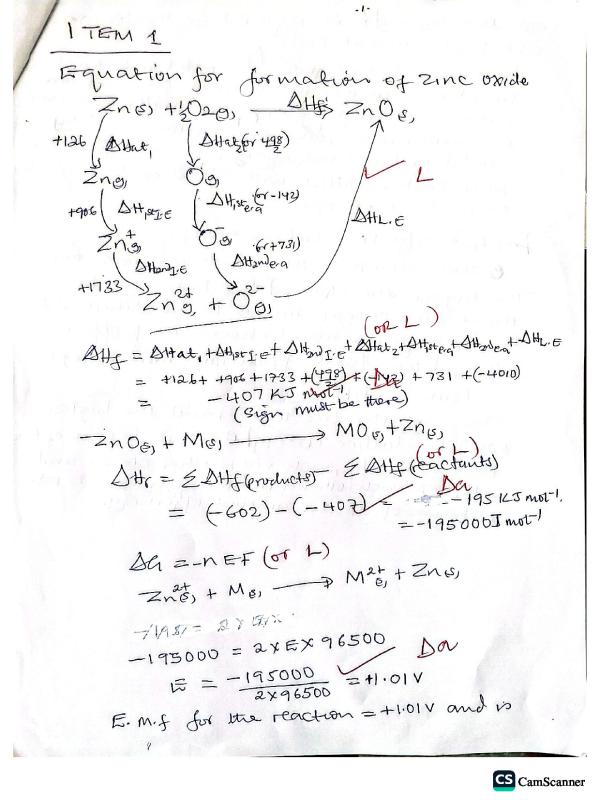 -1-
ITEM 1
Equation for formation of Zinc oxide
Zn(s) + ½O2(g) ΔHf → ZnO(s)
+126 ΔHat1 ΔHat2(or 498/2)
Zn(g) O(g) L
+906 ΔH1st I.E ΔH1st e.a (or -142)
ΔHL.E
Zn+(g) O-(g) (or +731)
ΔH2nd I.E ΔH2nd e.a
+1733
Zn2+(g) + O2-(g)
(or L)
ΔHf = ΔHat1 + ΔH1st I.E + ΔH2nd I.E + ΔHat2 + ΔH1st e.a + ΔH2nd e.a + ΔHL.E
= +126 + +906 + 1733 + (498/2) + (-142) + 731 + (-4010)
= -407 KJ mol-1. Da
(Sign must be there)
ZnO(s) + M(s) → MO(s) + Zn(s)
(or L)
ΔHr = ΣΔHf(products) - ΣΔHf(reactants)
Da
= (-602) - (-407) = -195 KJ mol-1.
= -195000 J mol-1
ΔG = -nEF (or L)
Zn2+(s) + M(s) → M2+(s) + Zn(s)
-195000 = 2 x E x 96500 Da
E = -195000/2x96500 = +1.01V
E.m.f for the reaction = +1.01V and is
CS CamScanner